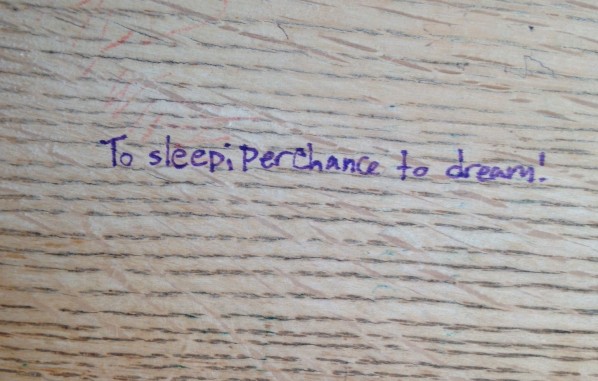 To sleep; perchance to dream!